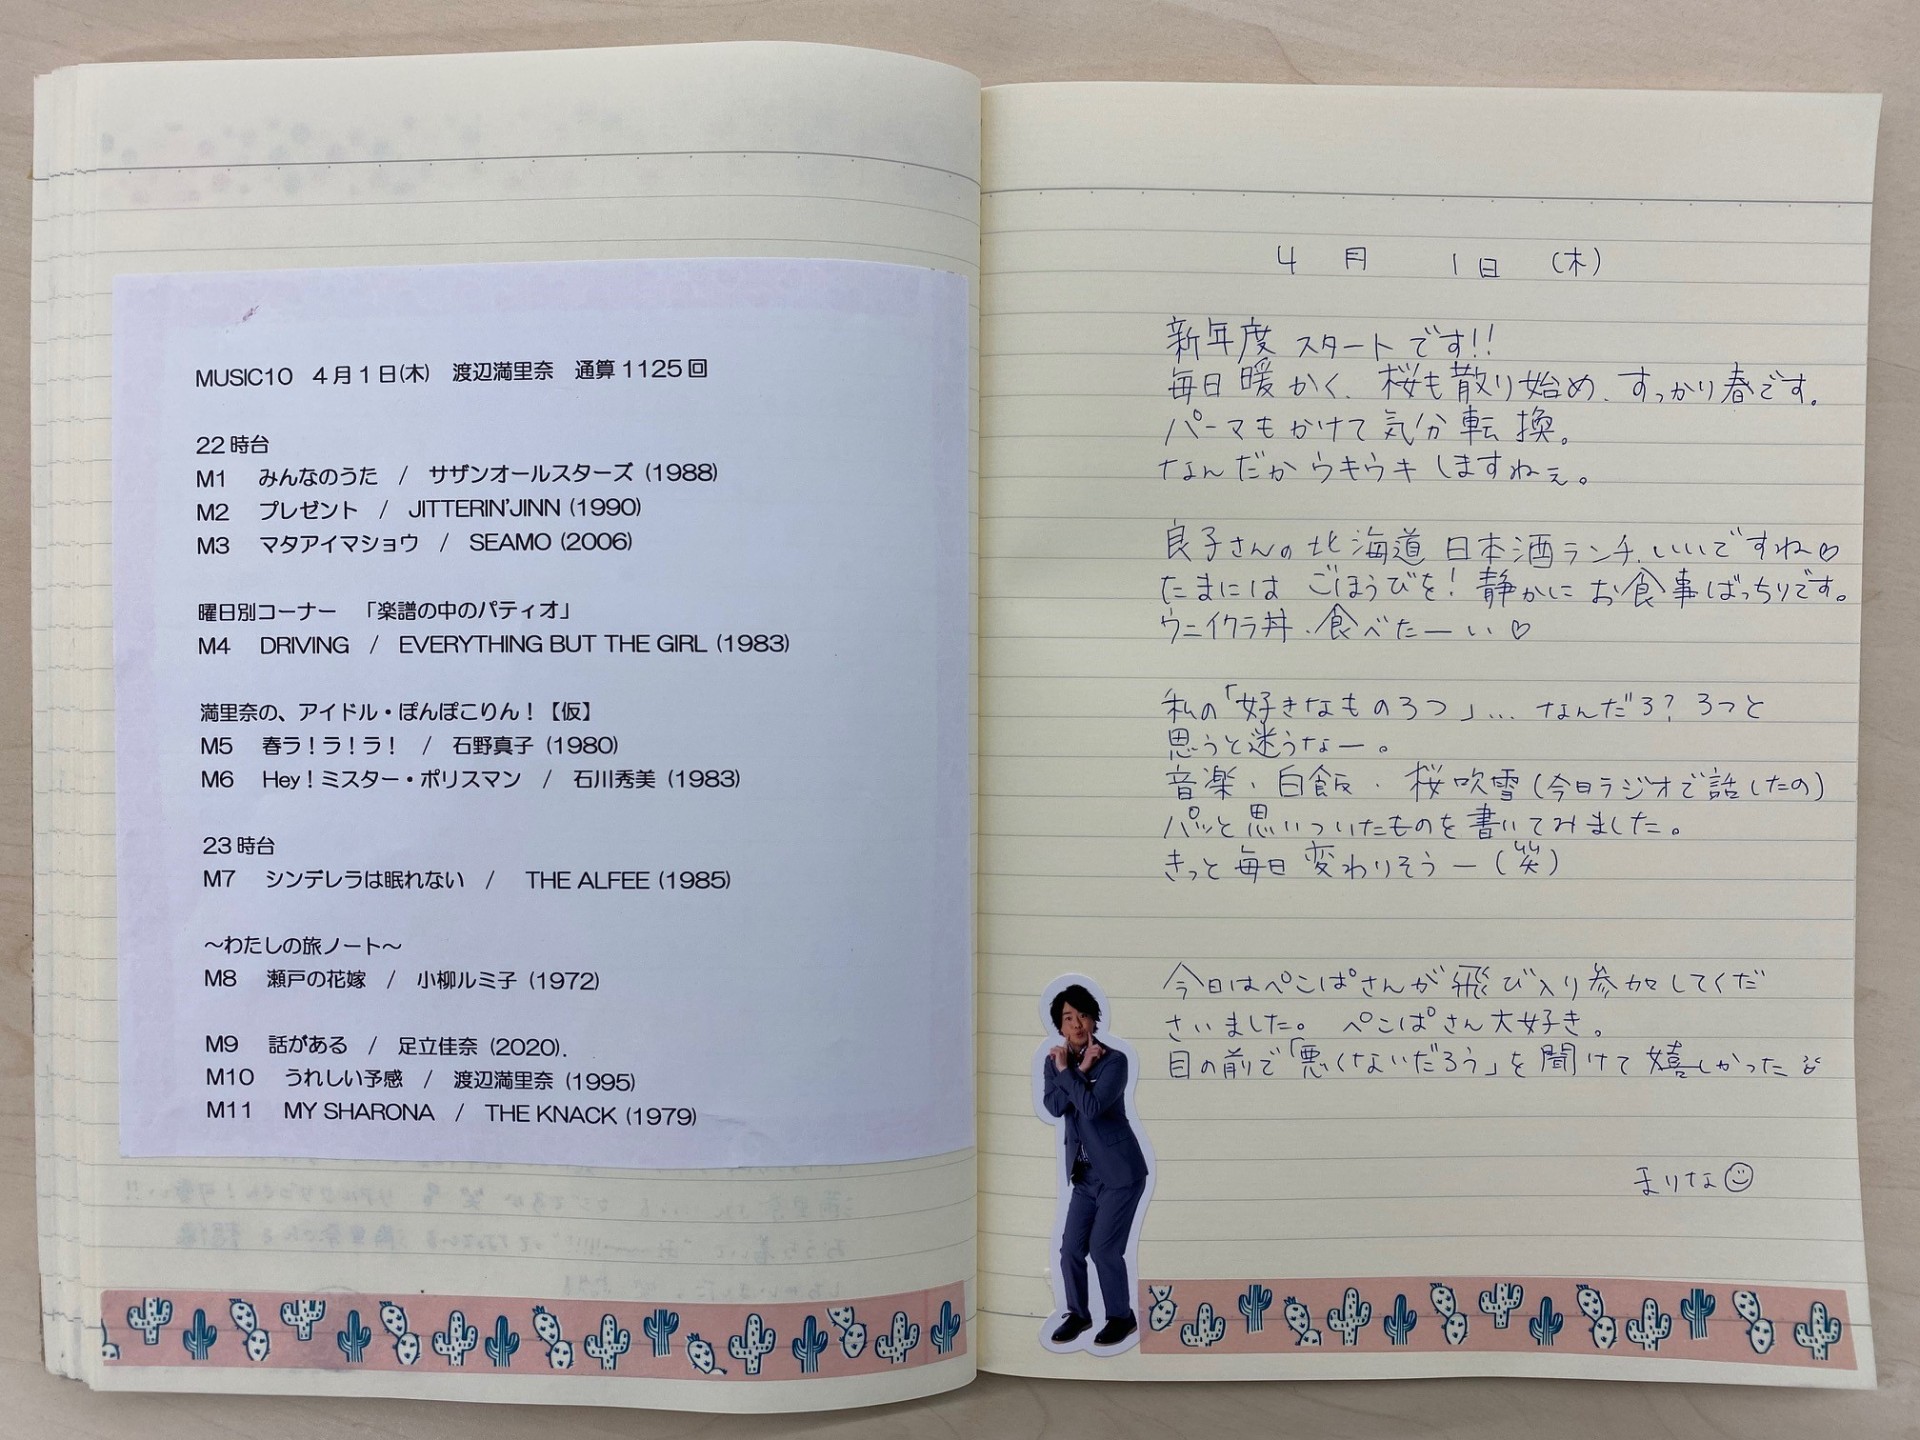 MUSIC10 4月1日(木) 渡辺満里奈 通算1125回
22時台
M1 みんなのうた / サザンオールスターズ (1988)
M2 プレゼント / JITTERIN'JINN (1990)
M3 マタアイマショウ / SEAMO (2006)
曜日別コーナー 「楽譜の中のパティオ」
M4 DRIVING / EVERYTHING BUT THE GIRL (1983)
満里奈の、アイドル・ぽんぽこりん!【仮】
M5 春ラ!ラ!ラ! / 石野真子 (1980)
M6 Hey!ミスター・ポリスマン / 石川秀美 (1983)
23時台
M7 シンデレラは眠れない / THE ALFEE (1985)
~わたしの旅ノート~
M8 瀬戸の花嫁 / 小柳ルミ子 (1972)
M9 話がある / 足立佳奈 (2020).
M10 うれしい予感 / 渡辺満里奈 (1995)
M11 MY SHARONA / THE KNACK (1979)
4月 1日 (木)
新年度スタートです!!
毎日暖かく、桜も散り始め、すっかり春です。
パーマもかけて気分転換。
なんだかウキウキしますねぇ。
良子さんの北海道日本酒ランチ、いいですね♡
たまにはごほうびを!静かにお食事ばっちりです。
ウニイクラ丼、食べたーい♡
私の「好きなもの3つ」… なんだろ?3つと
思うと迷うなー。
音楽・白飯・桜吹雪(今日ラジオで話したの)
パッと思いついたものを書いてみました。
きっと毎日変わりそうー(笑)
今日はぺこぱさんが飛び入り参加してくだ
さいました。ぺこぱさん大好き。
目の前で「悪くないだろう」を聞けて嬉しかった
まりな☺